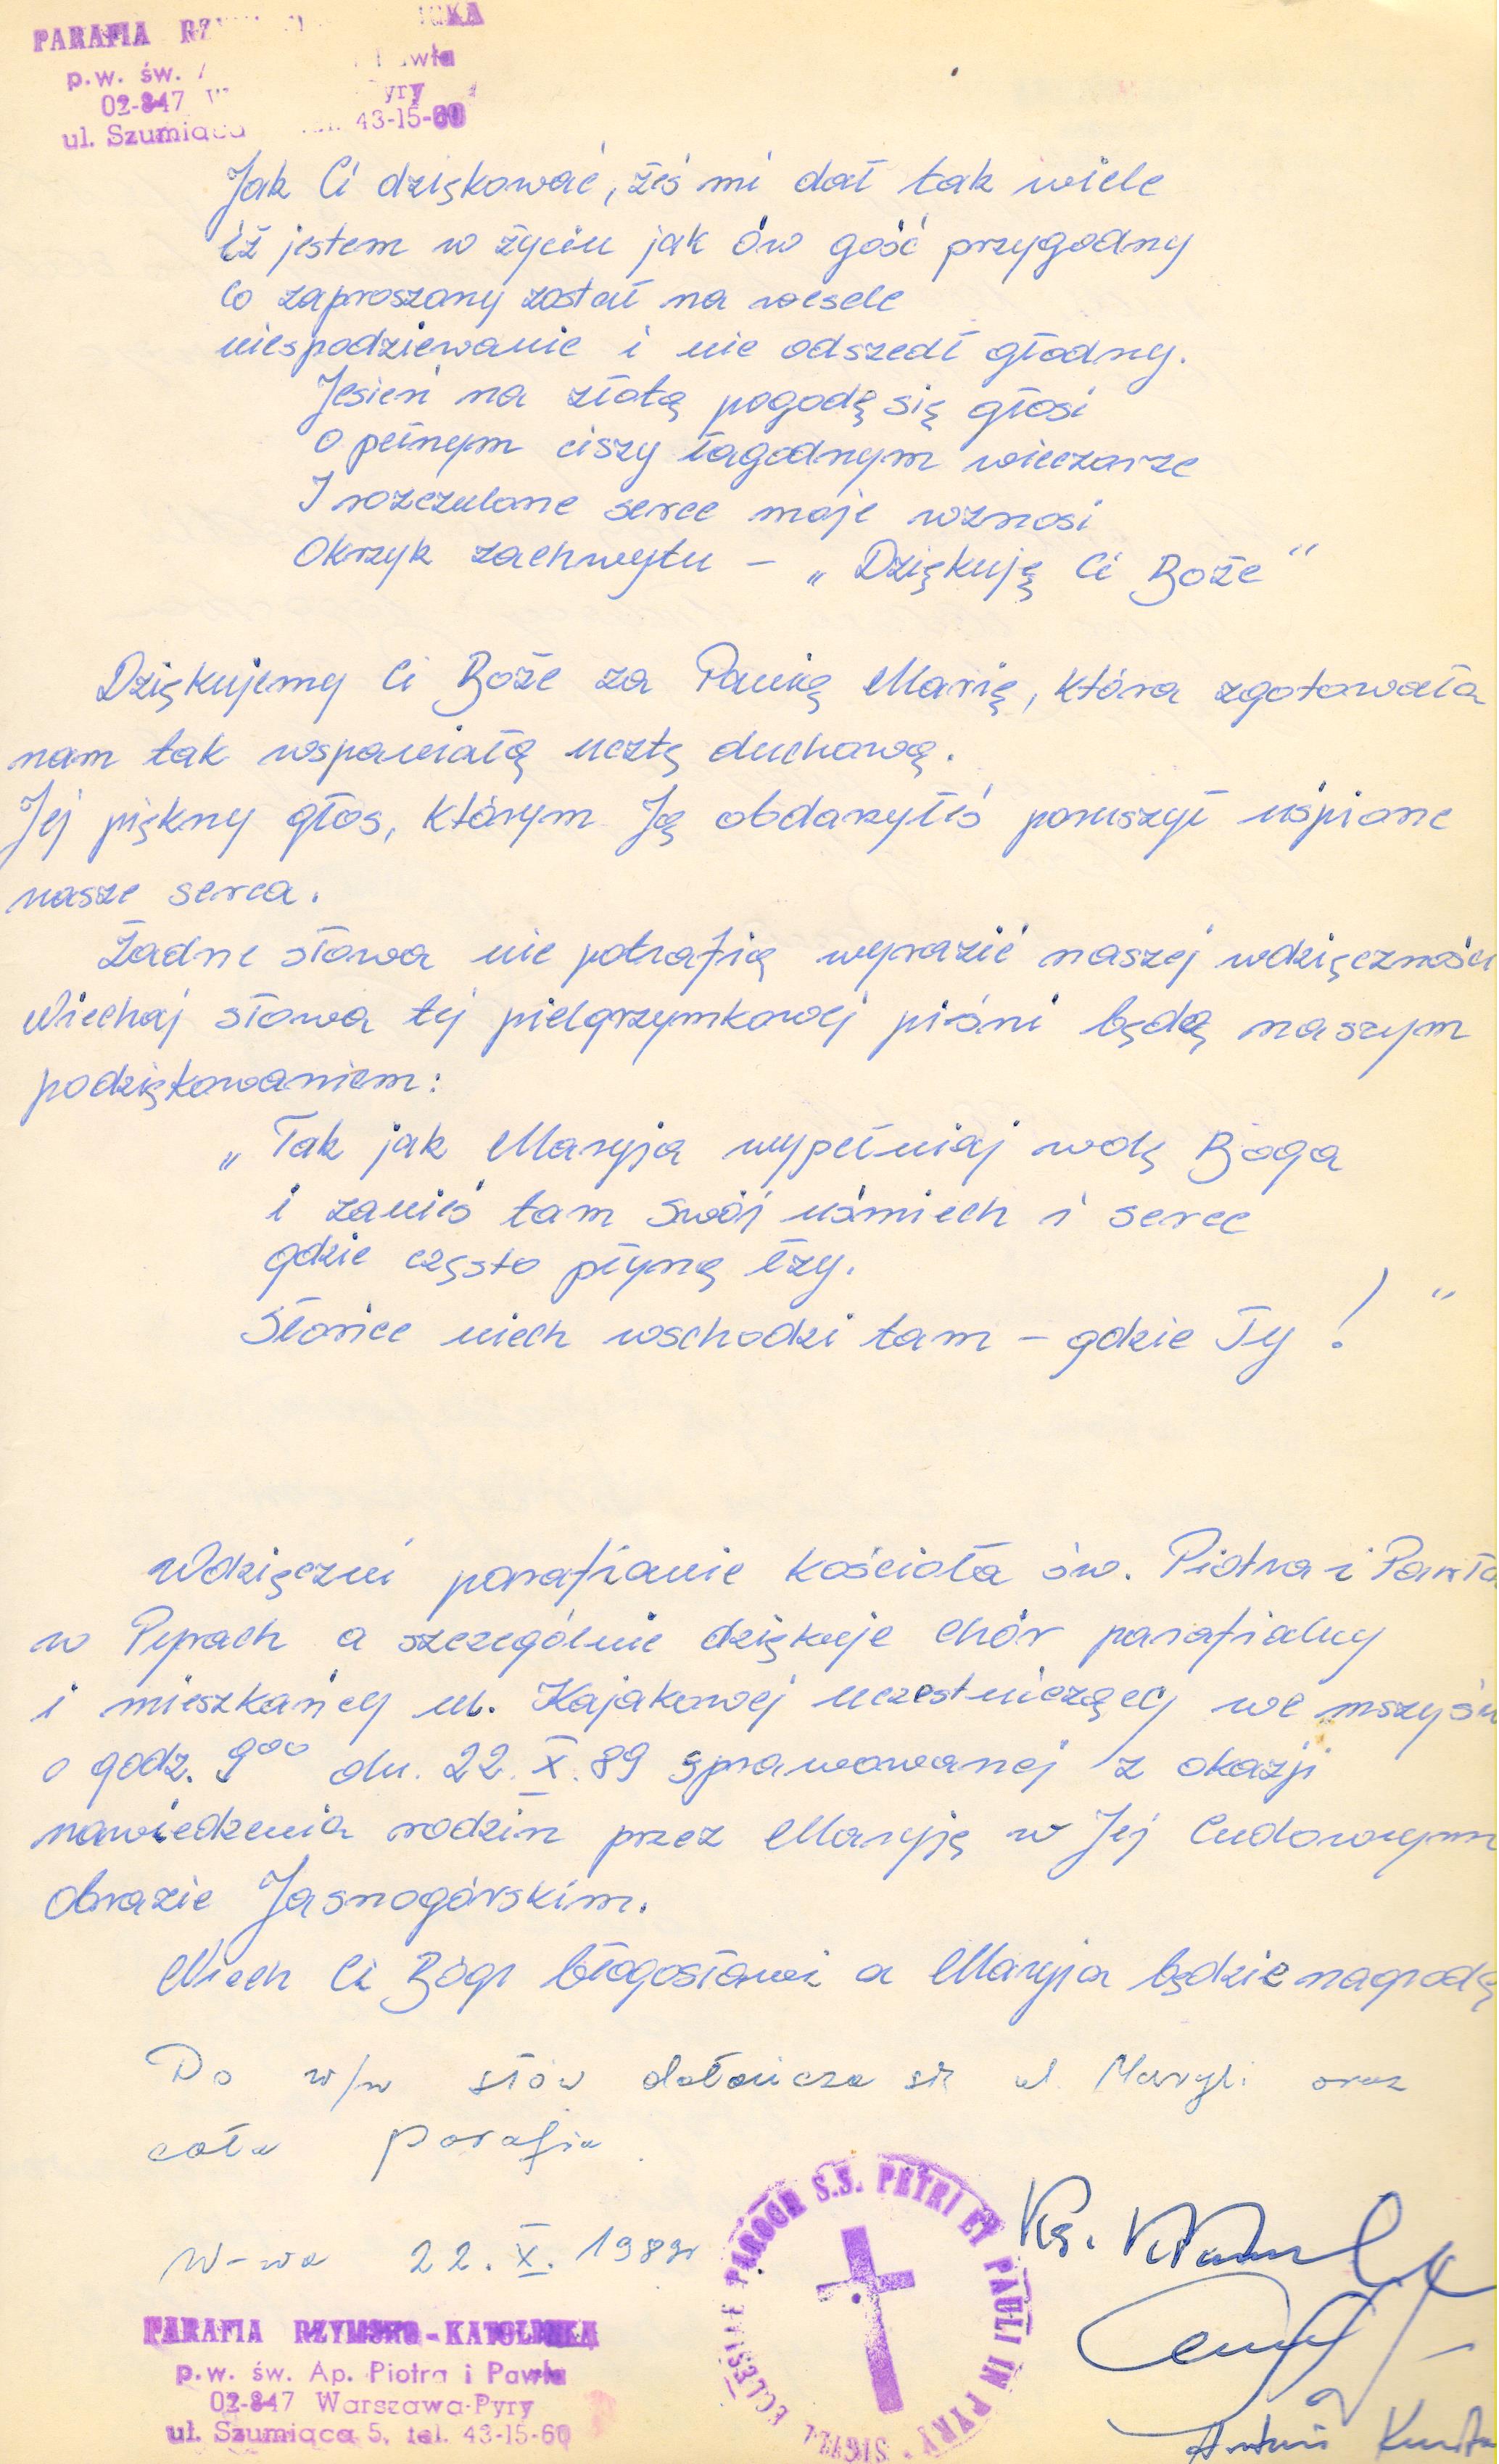 PARAFIA
p.w. św.
02-847
ul. Szumiąca 43-15-60
Jak Ci dziękować, żeś mi dał tak wiele
iż jestem w życiu jak ów gość przygodny
Co zaproszony został na wesele
niespodziewanie i nie odszedł głodny.
Jesień na złotą pogodę się głosi
O pełnym ciszy łagodnym wieczorze
I rozczulone serce moje wznosi
Okrzyk zachwytu – „Dziękuję Ci Boże"
Dziękujemy Ci Boże za Panią Marię, która zgotowała
nam tak wspaniałą ucztę duchową.
Jej piękny głos, którym Ją obdarzyłeś poruszył uśpione
nasze serca.
Żadne słowa nie potrafią wyrazić naszej wdzięczności
Niechaj słowa tej pielgrzymkowej pieśni będą naszym
podziękowaniem:
„Tak jak Maryja wypełniaj wolę Boga
i zanieś tam swój uśmiech i serce
gdzie często płyną łzy.
Słońce niech wschodzi tam – gdzie Ty!"
Wdzięczni parafianie kościoła św. Piotra i Pawła
w Pyrach a szczególnie dziękuje chór parafialny
i mieszkańcy ul. Kajakowej uczestniczący we mszy św
o godz. 9⁰⁰ dn. 22.X.89 sprawowanej z okazji
nawiedzenia rodzin przez Maryję w Jej Cudownym
Obrazie Jasnogórskim.
Niech Ci Bóg błogosławi a Maryja będzie nagrodą
Do w/w słów dołącza się ul Maryli oraz
cała parafia.
W-wa 22.X.1989r
Ks.
PARAFIA RZYMSKO-KATOLICKA
p.w. św. Ap. Piotra i Pawła
02-847 Warszawa-Pyry
ul. Szumiąca 5, tel. 43-15-60
SIGILL. ECCLESIAE PAROCH S.S. PETRI ET PAULI IN PYRY
Antoni